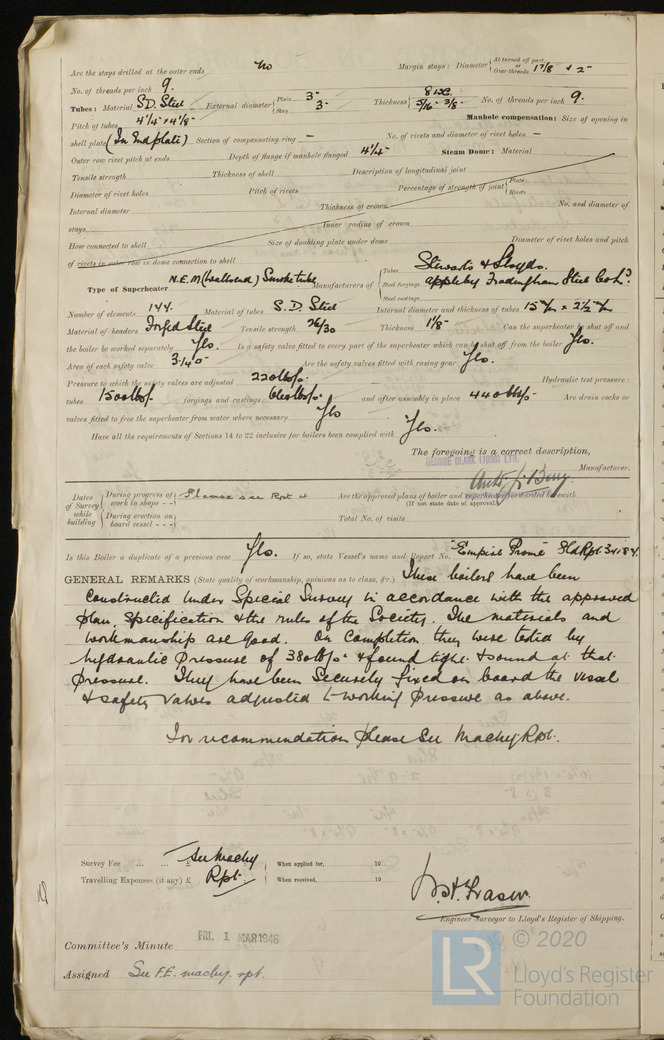 Are the stays drilled at the outer ends No Margin stays: Diameter { At turned off part, or Over threads 1 7/8 + 2"
No. of threads per inch 9.
Tubes: Material S.D. Steel External diameter { Plain 3" Stay 3" Thickness { 8 WG. 5/16 - 3/8" No. of threads per inch 9.
Pitch of tubes 4 1/4 x 4 1/8" Manhole compensation: Size of opening in
shell plate (In End plate) Section of compensating ring — No. of rivets and diameter of rivet holes —
Outer row rivet pitch at ends Depth of flange if manhole flanged 4 1/4" Steam Dome: Material
Tensile strength Thickness of shell Description of longitudinal joint
Diameter of rivet holes Pitch of rivets Percentage of strength of joint { Plate Rivets
Internal diameter Thickness of crown No. and diameter of
stays Inner radius of crown
How connected to shell Size of doubling plate under dome Diameter of rivet holes and pitch
of rivets in outer row in dome connection to shell
Type of Superheater N.E.M (Wallsend) Smoke tube Manufacturers of { Tubes Stewarts & Lloyds. Steel forgings Appleby Frodingham Steel Co Ld. Steel castings
Number of elements 144. Material of tubes S.D. Steel Internal diameter and thickness of tubes 15 m/m x 2 1/2 m/m
Material of headers Forged Steel Tensile strength 26/30 Thickness 1 1/8" Can the superheater be shut off and
the boiler be worked separately Yes. Is a safety valve fitted to every part of the superheater which can be shut off from the boiler Yes.
Area of each safety valve 3.140" Are the safety valves fitted with easing gear Yes.
Pressure to which the safety valves are adjusted 220 lbs/o" Hydraulic test pressure:
tubes 1500 lbs/o" forgings and castings 660 lbs/o" and after assembly in place 440 lbs/o" Are drain cocks or
valves fitted to free the superheater from water where necessary Yes
Have all the requirements of Sections 14 to 22 inclusive for boilers been complied with Yes.
The foregoing is a correct description,
GEORGE CLARK (1938) LTD.
Manufacturer.
Dates of Survey while building { During progress of work in shops - - Please see Rpt 4 Are the approved plans of boiler and superheater forwarded herewith
(If not state date of approval.)
During erection on board vessel - - - Total No. of visits
Is this Boiler a duplicate of a previous case Yes. If so, state Vessel's name and Report No. "Empire Prome" Sld Rpt 34184.
GENERAL REMARKS (State quality of workmanship, opinions as to class, &c.) These boilers have been
constructed under Special Survey in accordance with the approved
plan, specification & the rules of the Society. The materials and
workmanship are good. On completion they were tested by
hydraulic pressure of 380 lbs/o" & found tight & sound at that
pressure. They have been securely fixed on board the vessel
& safety valves adjusted to working pressure as above.
For recommendation please see Machy Rpt.
Survey Fee ... ... £ See Machy When applied for, 19
Travelling Expenses (if any) £ Rpt. When received, 19
Engineer Surveyor to Lloyd's Register of Shipping.
Committee's Minute FRI. 1 MAR 1946
Assigned See F.E. machy. rpt.
LR © 2020
Lloyd's Register
Foundation